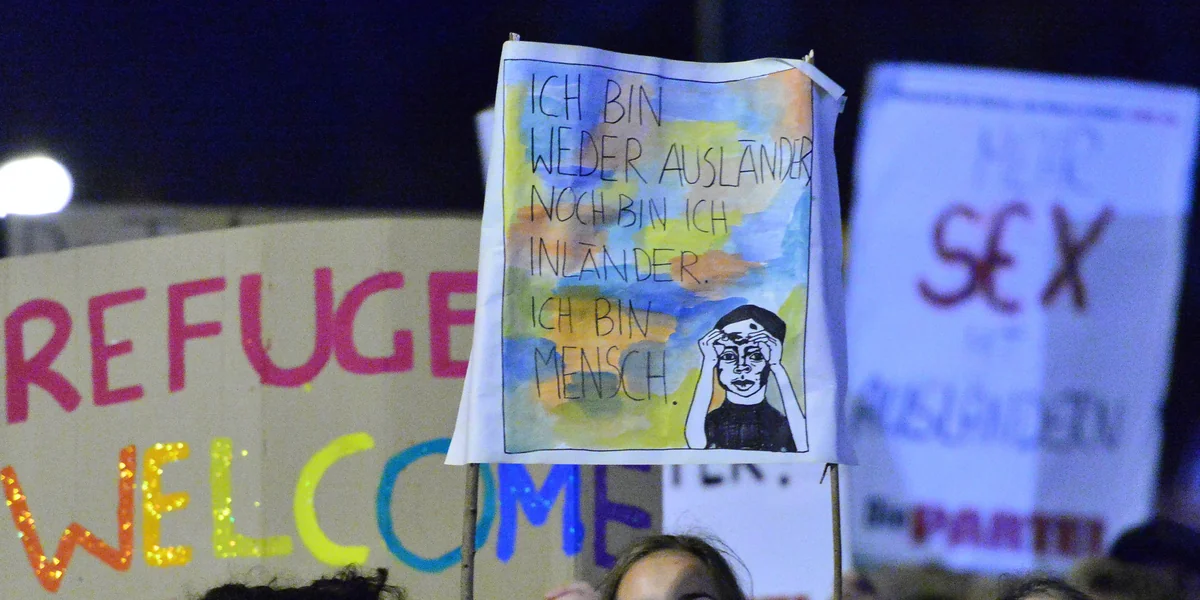 REFUGE
WELCOME
ICH BIN
WEDER AUSLÄNDER
NOCH BIN ICH
INLÄNDER.
ICH BIN
MENSCH.
MEHR
SEX
MIT
AUSLÄNDERN
Die PARTEI